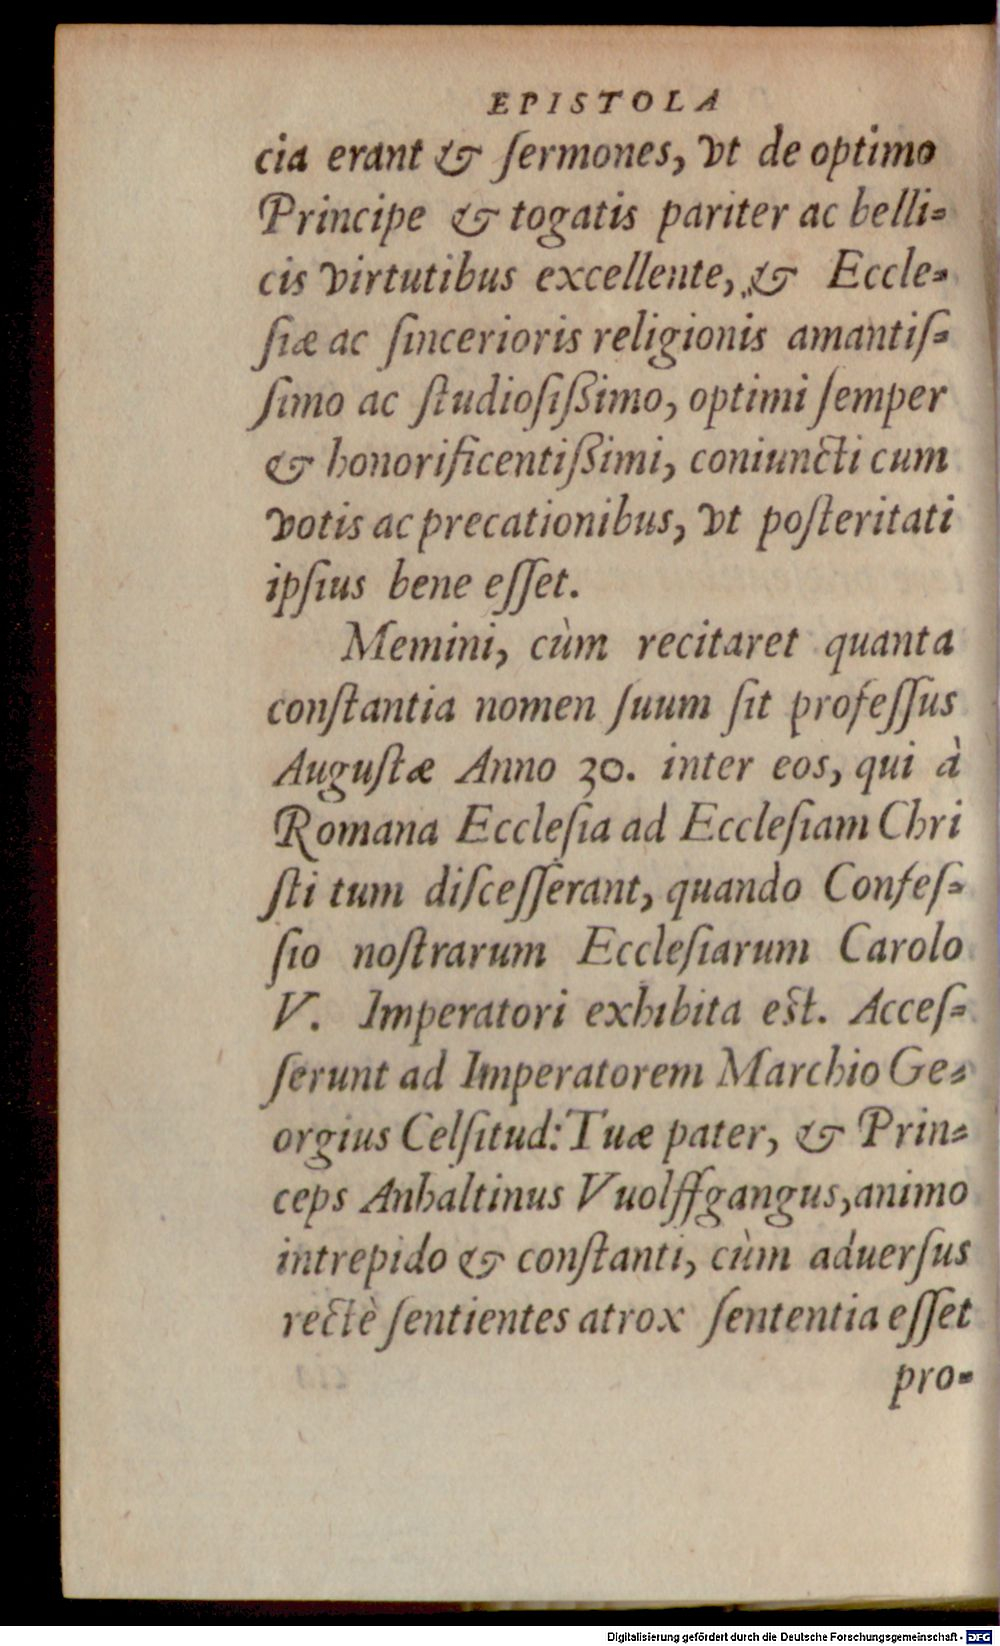 EPISTOLA
cia erant & ſermones, vt de optimo
Principe & togatis pariter ac belli-
cis virtutibus excellente, & Eccle-
ſiæ ac ſincerioris religionis amantiſ-
ſimo ac ſtudioſiſſimo, optimi ſemper
& honorificentiſſimi, coniuncti cum
votis ac precationibus, vt poſteritati
ipſius bene eſſet.
Memini, cùm recitaret quanta
conſtantia nomen ſuum ſit profeſſus
Auguſtæ Anno 30. inter eos, qui à
Romana Eccleſia ad Eccleſiam Chri
ſti tum diſceſſerant, quando Confeſ-
ſio noſtrarum Eccleſiarum Carolo
V. Imperatori exhibita eſt. Acceſ-
ſerunt ad Imperatorem Marchio Ge-
orgius Celſitud: Tuæ pater, & Prin-
ceps Anhaltinus Vuolffgangus, animo
intrepido & conſtanti, cùm aduerſus
rectè ſentientes atrox ſententia eſſet
pro-
Digitalisierung gefördert durch die Deutsche Forschungsgemeinschaft - DFG